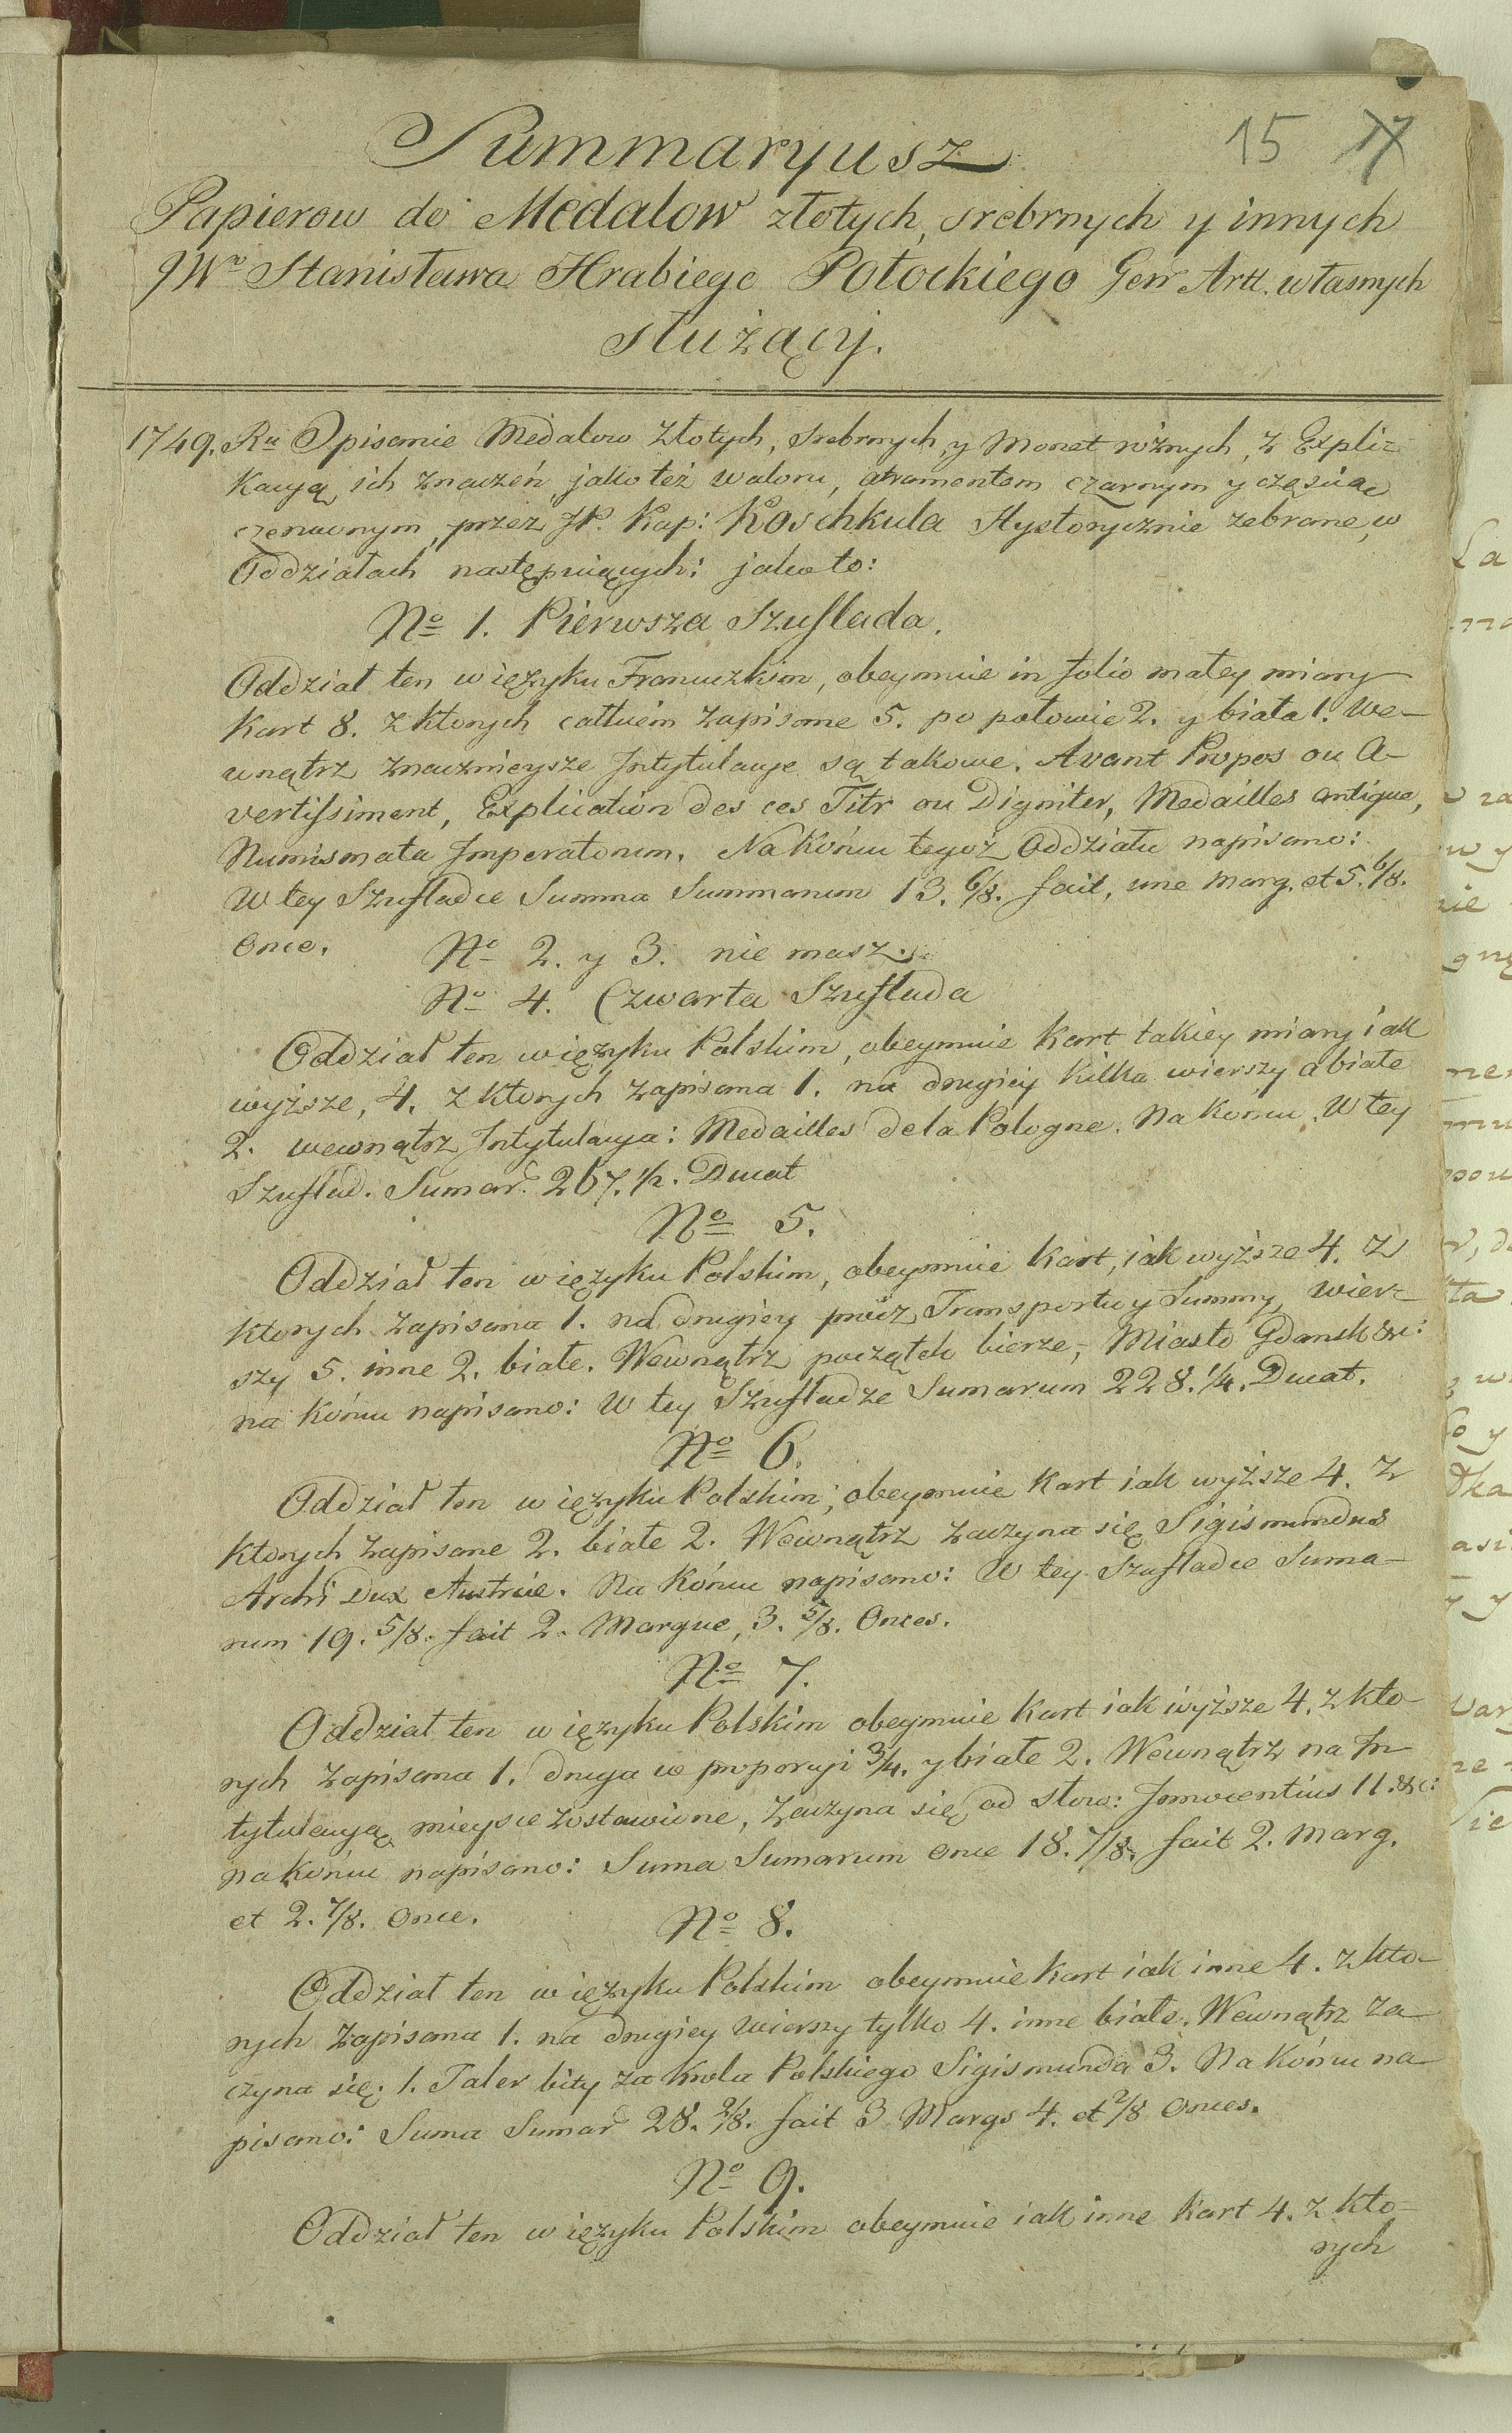 15 17
Summaryusz
Papierow do Medalow złotych, srebrnych y innych
JWo Stanisława Hrabiego Potockiego Gen Artt. własnych
służący.
1749. Ru Opisanie Medalow Złotych, Srebrnych, y Monet różnych, z Expli-
kacyą ich znaczeń jako też waloru, atramentem czarnym y częścią
czerwonym, przez JP. Kap: Koschkula Hystorycznie zebrane, w
Oddziałach następuiących: jako to:
No 1. Pierwsza Szuflada.
Oddział ten w ięzyku Francuzkim, obeymuie in folio małey miary
Kart 8. z ktorych całkiem zapisane 5. po połowie 2. y biała 1. We-
wnątrz znacznieysze Intytulacye są takowe. Avant Propos ou A-
vertissiment, Explication des ces Titr ou Digniter, Medailles antique,
Numismata Imperatorum. Na Końcu tegoż Oddziału napisano:
W tey Szufladce Summa Summarum 13. 6/8. fait, une Marg. et 5. 6/8.
Once.
No 2. y 3. nie masz.
No 4. Czwarta Szuflada
Oddział ten w ięzyku Polskim, obeymuie Kart takiey miary iak
wyższe, 4. z ktorych zapisana 1. na drugiey kilka wierszy a białe
2. wewnątrz Intytulacya: Medailles de la Pologne. Na Końcu. W tey
Szuflad. Sumar. 267. 1/2. Ducat
No 5.
Oddział ten w ięzyku Polskim, obeymuie Kart, iak wyższe 4. z
ktorych zapisana 1. na drugiey prócz Transportu y Summy, wier-
szy 5. inne 2. białe. Wewnątrz początek bierze, Miasto Gdansk &c:
na końcu napisano: W tey Szufladze Sumarum 228. 1/4. Ducat.
No 6.
Oddział ten w ięzyku Polskim, obeymuie Kart iak wyższe 4. z
ktorych zapisane 2. białe 2. Wewnątrz zaczyna się Sigismundus
Archi Dux Austrie. Na Końcu napisano: W tey Szufladce Suma-
rum 19. 5/8. fait 2. Margue, 3. 5/8. Onces.
No 7.
Oddział ten w ięzyku Polskim obeymuie Kart iak wyższe 4. z kto-
rych zapisana 1. druga w proporcyi 3/4. y białe 2. Wewnątrz na In-
tytulacyą mieysce zostawione, zaczyna się od słow: Innocentius 11. &c:
na końcu napisano: Suma Sumarum once 18. 7/8. fait 2. Marg.
et 2. 7/8. Once.
No 8.
Oddział ten w ięzyku Polskim obeymuie Kart iak inne 4. z kto-
rych zapisana 1. na drugiey wierszy tylko 4. inne białe. Wewnątrz za-
czyna się: 1. Taler bity za Krola Polskiego Sigismunda 3. Na Końcu na-
pisano: Suma Sumar 28. 2/8. fait 3 Margs 4. et 2/8 Onces.
No 9.
Oddział ten w ięzyku Polskim obeymuie iak inne Kart 4. z kto-
rych